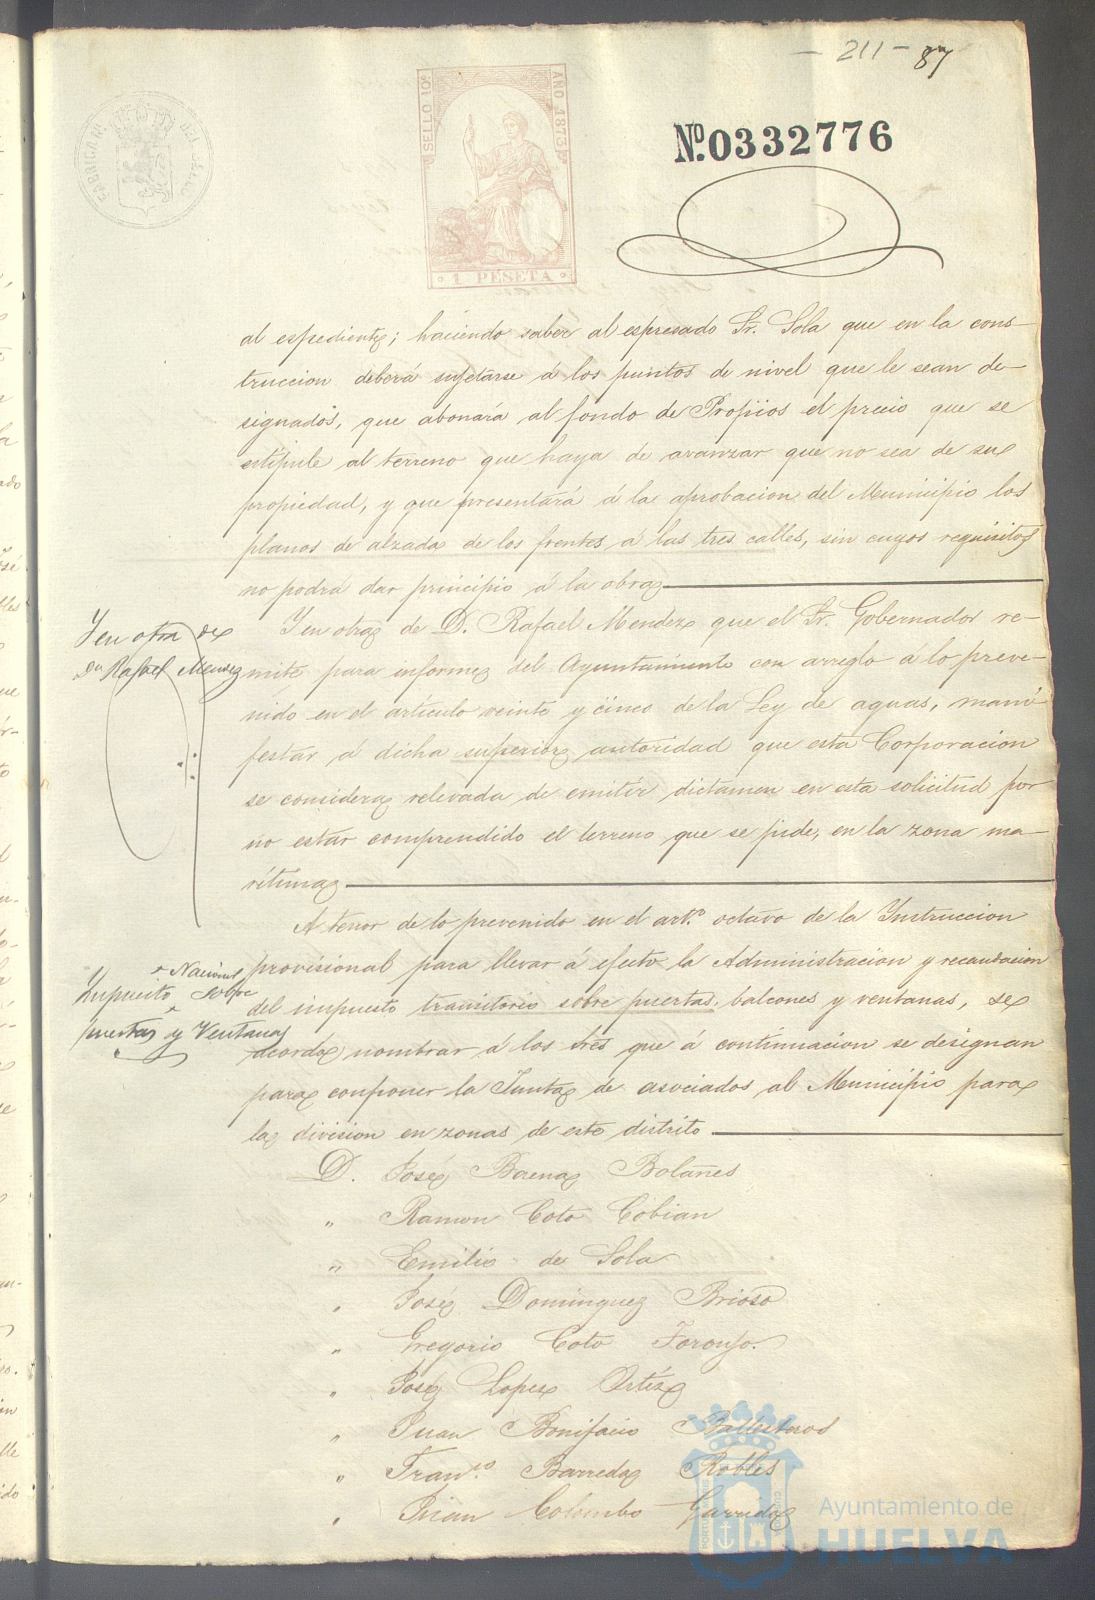 - 211 - 87
FABRICA N. DEL SELLO
SELLO 10º AÑO 1873
1 PESETA
Nº. 0332776
al espediente; haciendo saber al espresado Sr. Sola que en la cons-
truccion deberá sujetarse á los puntos de nivel que le sean de-
signados, que abonará al fondo de Propios el precio que se
estipule al terreno que haya de avanzar que no sea de su
propiedad, y que presentará á la aprobacion del Municipio los
planos de alzada de los frentes á las tres calles, sin cuyos requisitos
no podrá dar principio á la obra
Y en otra de
Dn Rafael Mendez
Y en otra de D. Rafael Mendez que el Sr. Gobernador re-
mite para informe del Ayuntamiento con arreglo á lo preve-
nido en el artículo veinte y cinco de la Ley de aguas, mani-
festar á dicha superior autoridad que esta Corporacion
se considera relevada de emitir dictamen en esta solicitud por
no estar comprendido el terreno que se pide, en la zona ma-
rítima
Impuesto Nacional sobre
puertas y Ventanas
A tenor de lo prevenido en el art.º octavo de la Instruccion
provisional para llevar á efecto la Administracion y recaudacion
del impuesto transitorio sobre puertas, balcones y ventanas, se
acordó nombrar á los tres que á continuacion se designan
para componer la Junta de asociados al Municipio para
la division en zonas de este distrito
D. José Baena Bolaños
" Ramon Coto Cobian
" Emilio de Sola
" José Dominguez Brioso
" Gregorio Coto
" José Lopez Ortíz
" Juan Bonifacio Ballesteros
" Fran.co Barreda Robles
" Juan Colombo Garrido
Ayuntamiento de
HUELVA